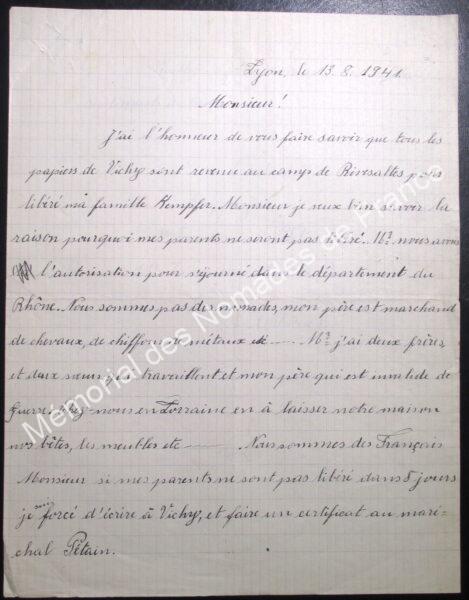 Lyon, le 13.8.1941
Monsieur!
J'ai l'honneur de vous faire savoir que tous les
papiers de Vichy sont revenu au camp de Rivesaltes pour
libéré ma famille Kempfer. Monsieur je veux bien savoir la
raison pourquoi mes parents ne seront pas libéré. Mr. nous avons
l'autorisation pour séjourné dans le département du
Rhône. Nous sommes pas des nomades, mon père est marchand
de chevaux, de chiffons, métaux Mr. j'ai deux frères
et deux sœurs qui travaillent et mon père qui est invalide de
guerre. chez-nous en Lorraine en à laisser notre maison
nos bêtes, les meubles etc Nous sommes des Français
Monsieur si mes parents ne sont pas libéré dans 5 jours
je suis forcé d'écrire à Vichy, et faire un certificat au maré=
chal Pétain.
Mémorial des Nomades de France